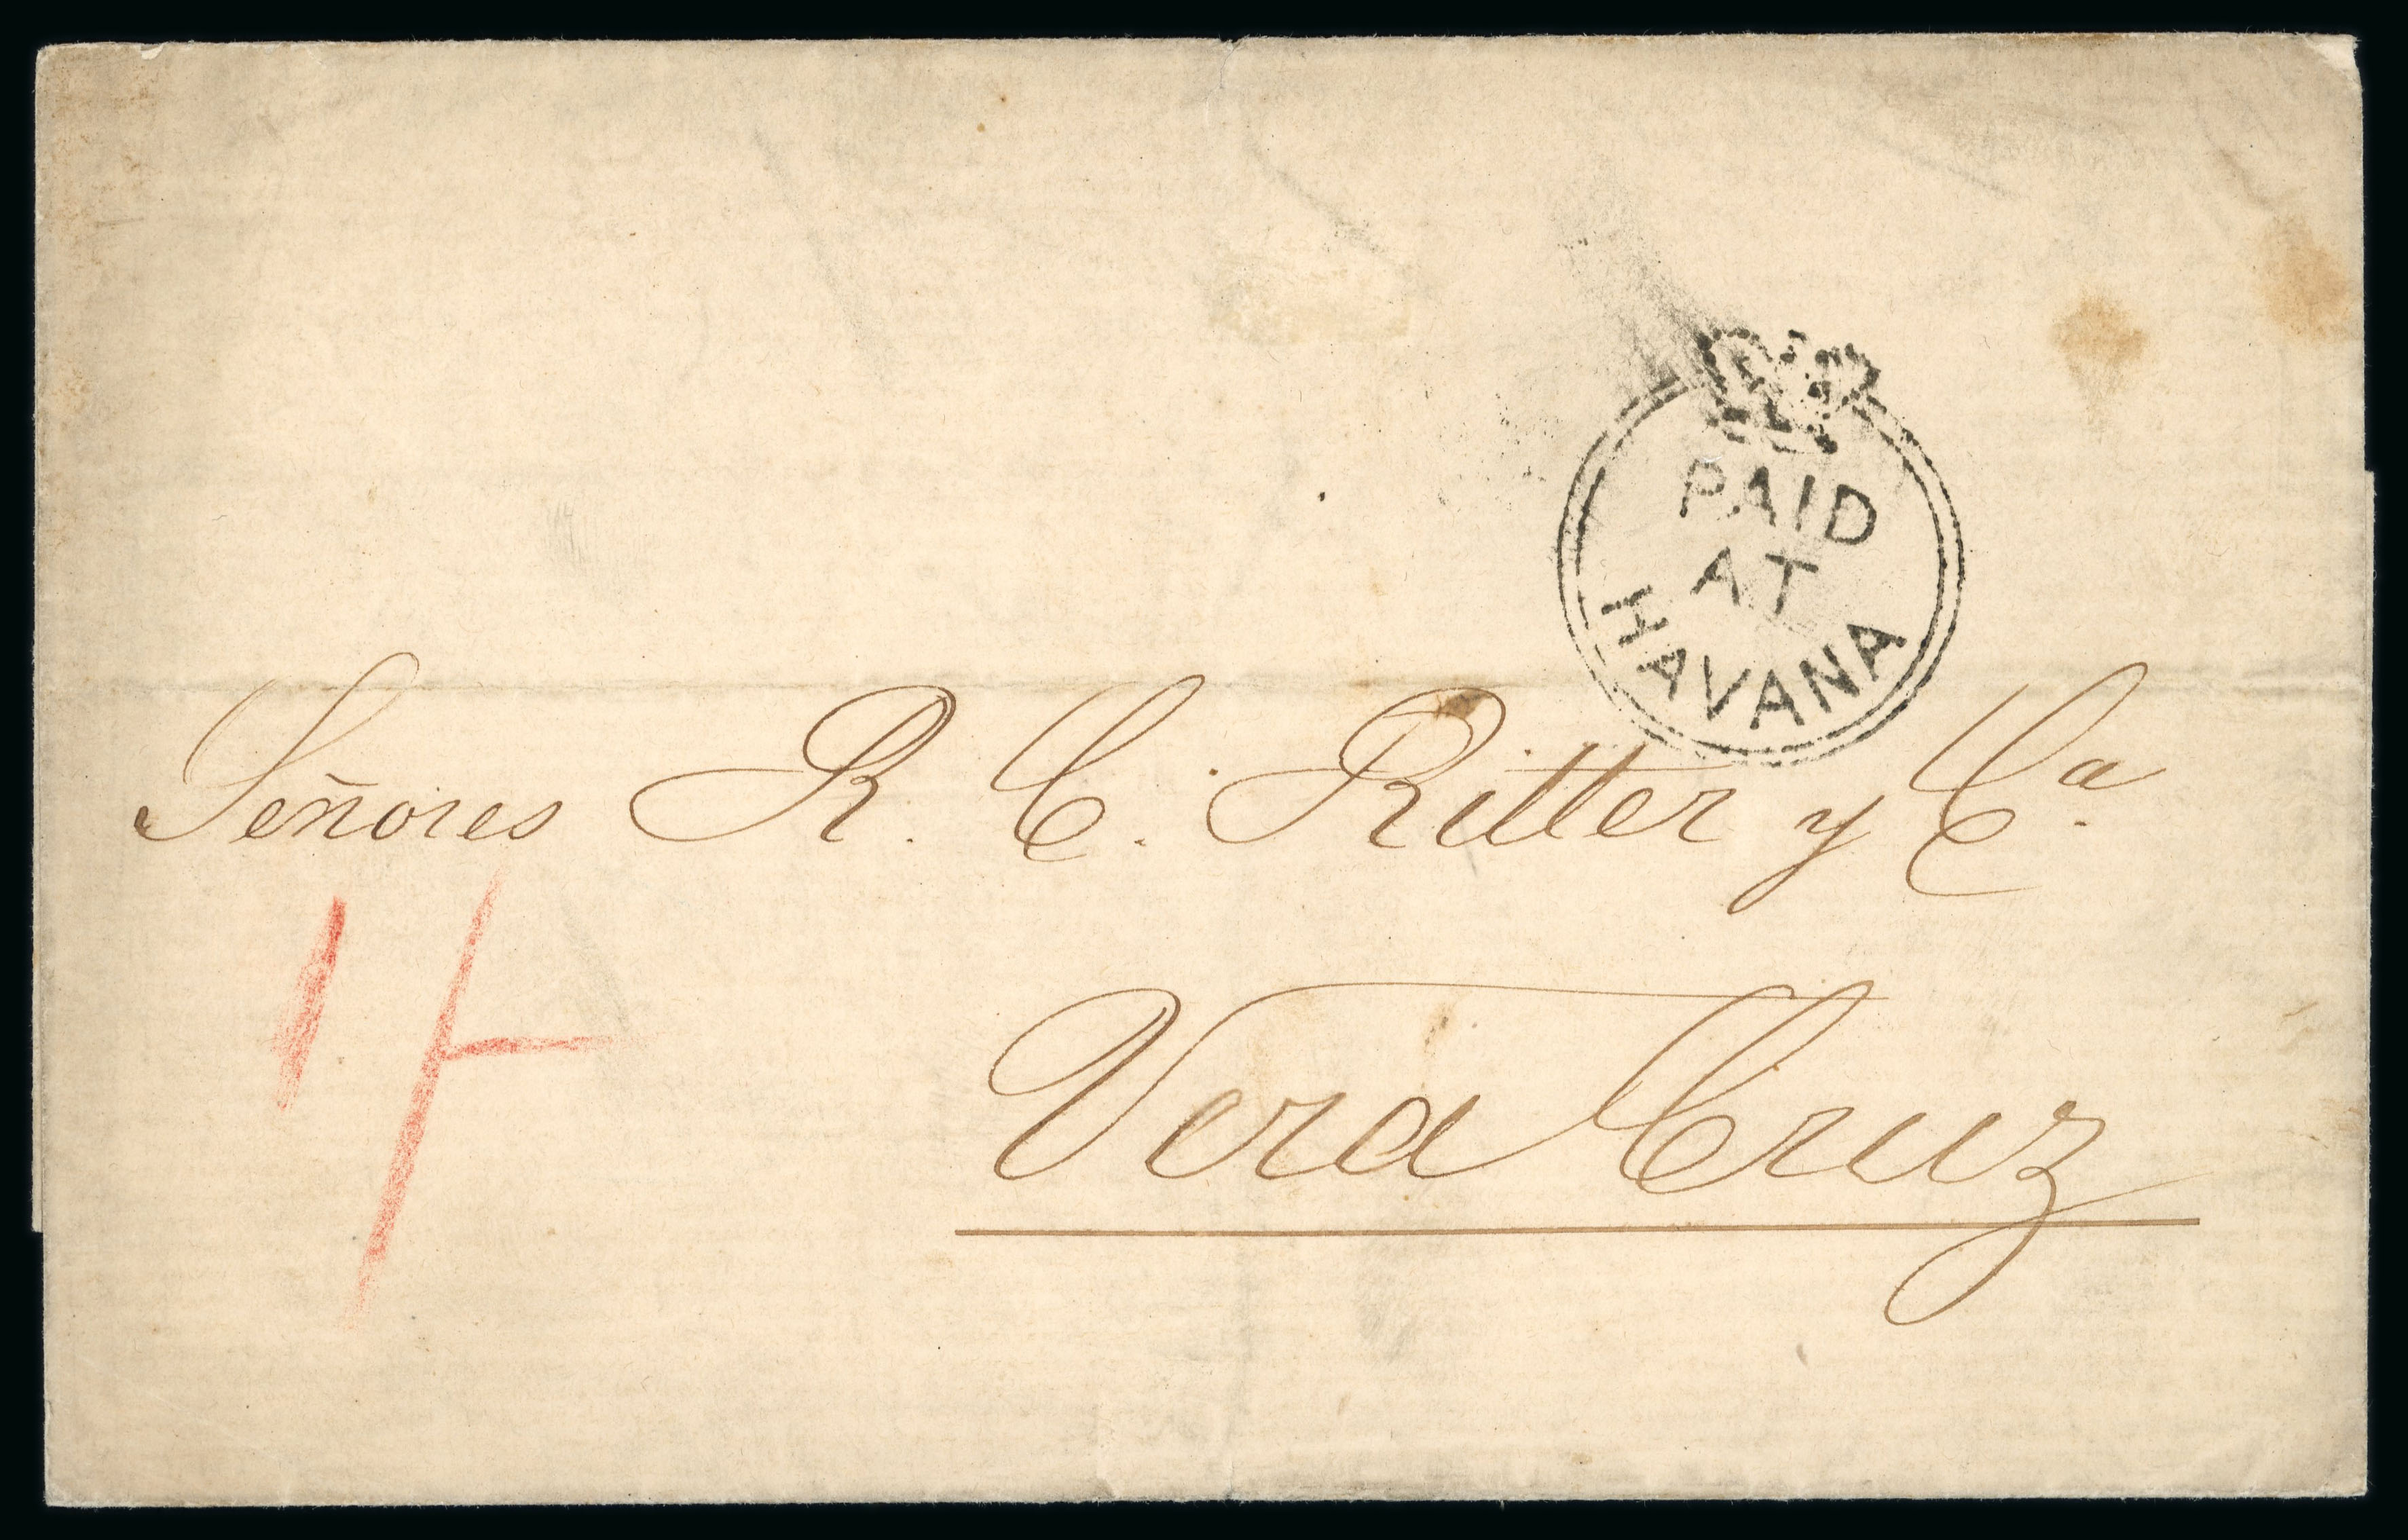 PAID
AT
HAVANA
Señores R. C. Ritter y Ca.
1/-
Vera Cruz